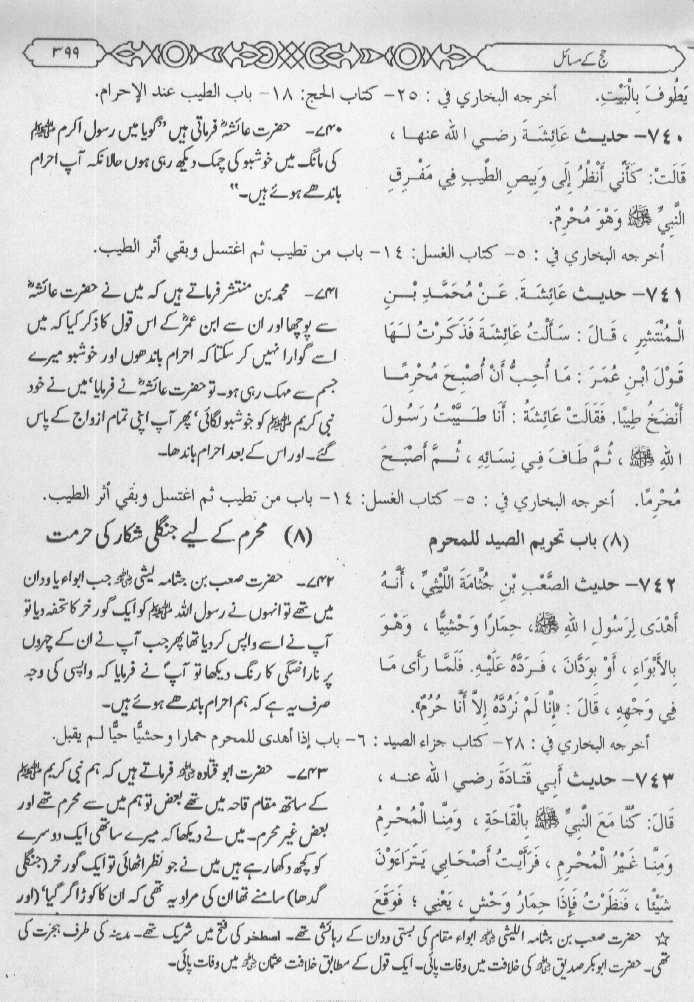 حج کے مسائل
۳۹۹
يَطُوفَ بِالْبَيْتِ. أخرجه البخاري في : ٢٥- كتاب الحج: ١٨- باب الطيب عند الإحرام.
٧٤٠- حديث عَائِشَةَ رضي الله عنها ،
قَالَتْ: كَأَنِّي أَنْظُرُ إِلَى وَبِيصِ الطِّيبِ فِي مَفْرِقِ
النَّبِيِّ ﷺ وَهْوَ مُحْرِمٌ.
۷۴۰- حضرت عائشہؓ فرماتی ہیں ”گویا میں رسول اکرم ﷺ
کی مانگ میں خوشبو کی چمک دیکھ رہی ہوں حالانکہ آپ احرام
باندھے ہوئے ہیں۔“
أخرجه البخاري في : ٥- كتاب الغسل: ١٤- باب من تطيب ثم اغتسل وبقي أثر الطيب.
٧٤١- حديث عَائِشَةَ. عَنْ مُحَمَّدِ بْنِ
الْمُنْتَشِرِ ، قَالَ : سَأَلْتُ عَائِشَةَ فَذَكَرْتُ لَهَا
قَوْلَ ابْنِ عُمَرَ : مَا أُحِبُّ أَنْ أُصْبِحَ مُحْرِمًا
أَنْضَخُ طِيبًا. فَقَالَتْ عَائِشَةُ : أَنَا طَيَّبْتُ رَسُولَ
اللهِ ﷺ ، ثُمَّ طَافَ فِي نِسَائِهِ ، ثُمَّ أَصْبَحَ
۷۴۱- محمد بن منتشر فرماتے ہیں کہ میں نے حضرت عائشہؓ
سے پوچھا اور ان سے ابن عمرؓ کے اس قول کا ذکر کیا کہ میں
اسے گوارا نہیں کر سکتا کہ احرام باندھوں اور خوشبو میرے
جسم سے مہک رہی ہو۔ تو حضرت عائشہؓ نے فرمایا‘ میں نے خود
نبی کریم ﷺ کو خوشبو لگائی‘ پھر آپ اپنی تمام ازواج کے پاس
گئے۔ اور اس کے بعد احرام باندھا۔
مُحْرِمًا. أخرجه البخاري في : ٥- كتاب الغسل: ١٤- باب من تطيب ثم اغتسل وبقي أثر الطيب.
(٨) باب تحريم الصيد للمحرم
(۸) محرم کے لیے جنگلی شکار کی حرمت
٧٤٢- حديث الصَّعْبِ بْنِ جُثَّامَةَ اللَّيْثِيِّ ، أَنَّهُ
أَهْدَى لِرَسُولِ اللهِ ﷺ، حِمَارًا وَحْشِيًّا ، وَهْوَ
بِالأَبْوَاءِ ، أَوْ بِوَدَّانَ ، فَرَدَّهُ عَلَيْهِ. فَلَمَّا رَأَى مَا
فِي وَجْهِهِ ، قَالَ : «إِنَّا لَمْ نَرُدَّهُ إِلاَّ أَنَّا حُرُمٌ».
۷۴۲- حضرت صعب بن جثامہ لیثی ؓ جب ابواء یا ودان
میں تھے تو انہوں نے رسول اللہ ﷺ کو ایک گورخر کا تحفہ دیا تو
آپ نے اسے واپس کر دیا تھا پھر جب آپ نے ان کے چہروں
پر ناراضگی کا رنگ دیکھا تو آپؐ نے فرمایا کہ واپسی کی وجہ
صرف یہ ہے کہ ہم احرام باندھے ہوئے ہیں۔
أخرجه البخاري في : ٢٨- كتاب جزاء الصيد : ٦- باب إذا أهدى للمحرم حمارا وحشيًّا حيًّا لم يقبل.
٧٤٣- حديث أَبِي قَتَادَةَ رضي الله عنه ،
قَالَ: كُنَّا مَعَ النَّبِيِّ ﷺ بِالْقَاحَةِ ، وَمِنَّا الْمُحْرِمُ
وَمِنَّا غَيْرُ الْمُحْرِمِ ، فَرَأَيْتُ أَصْحَابِي يَتَرَاءَوْنَ
شَيْئًا ، فَنَظَرْتُ فَإِذَا حِمَارُ وَحْشٍ ، يَعْنِي ؛ فَوَقَعَ
۷۴۳- حضرت ابو قتادہ ؓ فرماتے ہیں کہ ہم نبی کریم ﷺ
کے ساتھ مقام قاحہ میں تھے بعض تو ہم میں سے محرم تھے اور
بعض غیر محرم۔ میں نے دیکھا کہ میرے ساتھی ایک دوسرے
کو کچھ دکھا رہے ہیں میں نے جو نظر اٹھائی تو ایک گورخر (جنگلی
گدھا) سامنے تھا ان کی مراد یہ تھی کہ ان کا کوڑا گر گیا‘ (اور
☆ حضرت صعب بن جثامہ اللیثی ؓ ابواء مقام کی بستی ودان کے رہائشی تھے۔ اصطخر کی فتح میں شریک تھے۔ مدینہ کی طرف ہجرت کی
تھی۔ حضرت ابوبکر صدیق ؓ کی خلافت میں وفات پائی۔ ایک قول کے مطابق خلافت عثمان ؓ میں وفات پائی۔